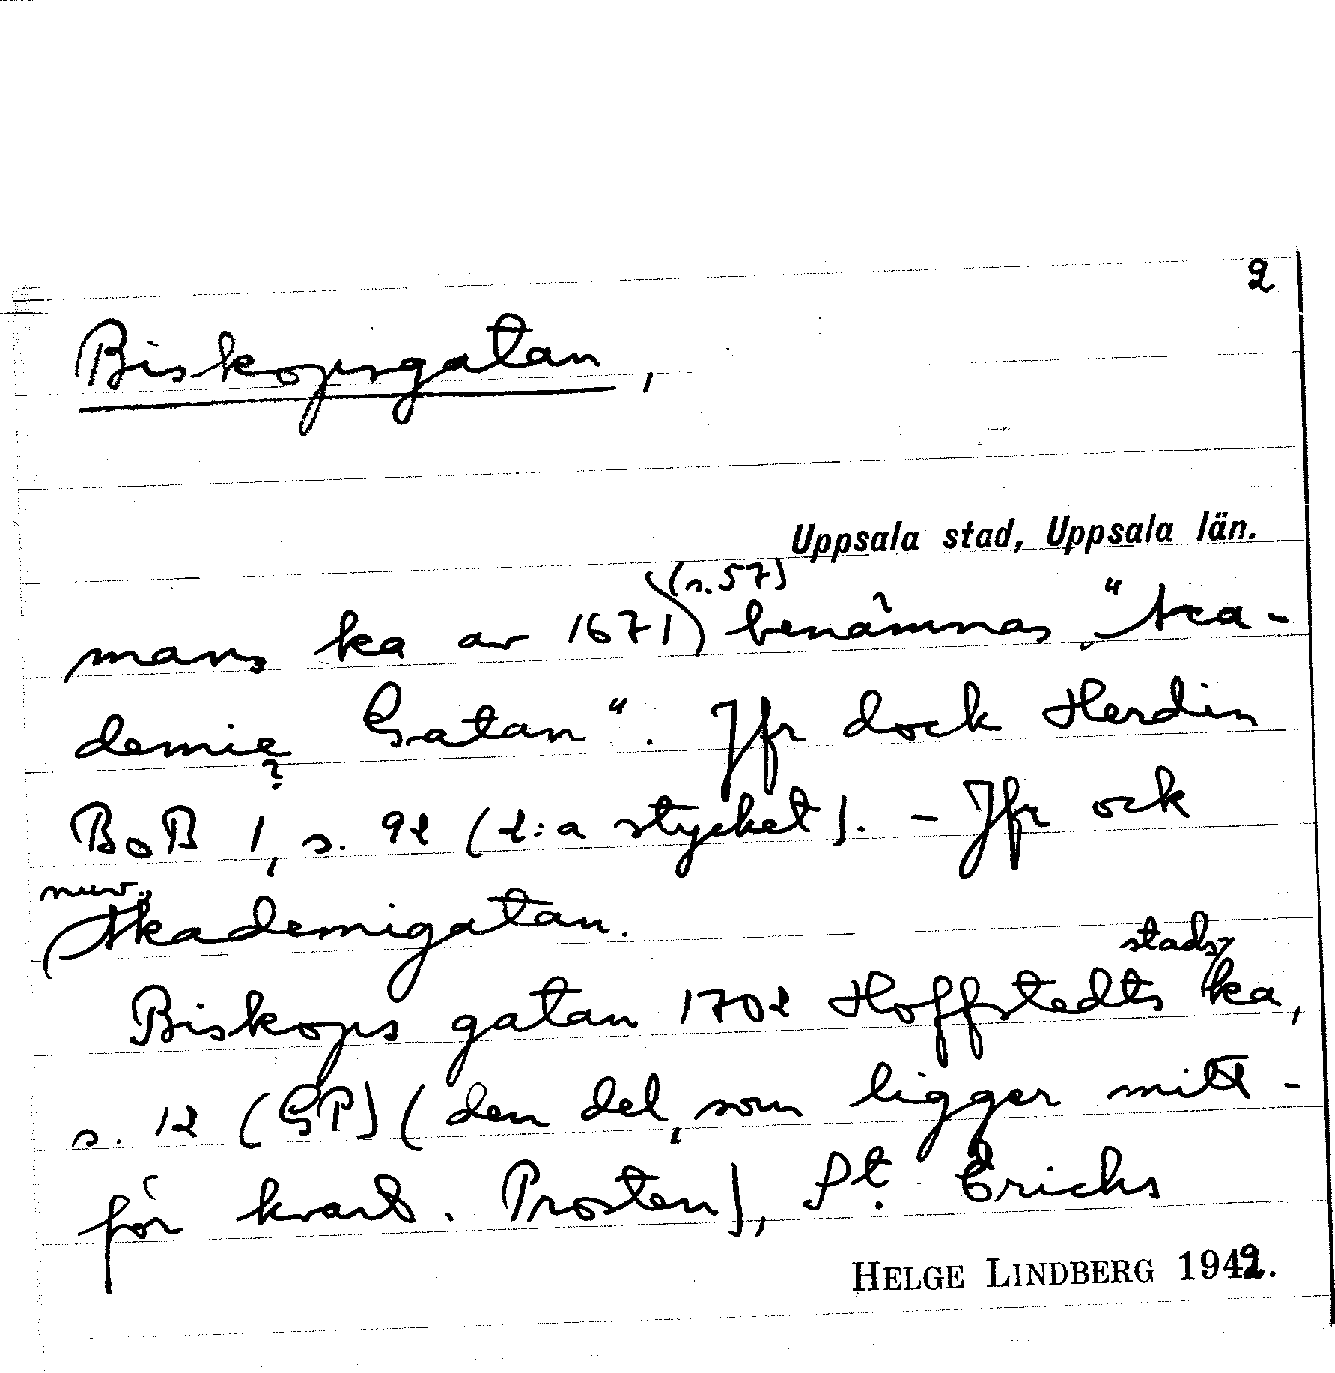 2
Biskopsgatan,
Uppsala stad, Uppsala län.
(s. 57)
mans ka av 1671 benämnas "Aca-
demie Gatan". Jfr dock Herdin
?
BoB 1, s. 92 (2:a stycket). – Jfr ock
nuv.
Akademigatan.
stads
Biskops gatan 1702 Hoffstedts ka,
s. 12 (GP) (den del, som ligger mitt-
för kvart. Prosten), St. Erichs
HELGE LINDBERG 1942.